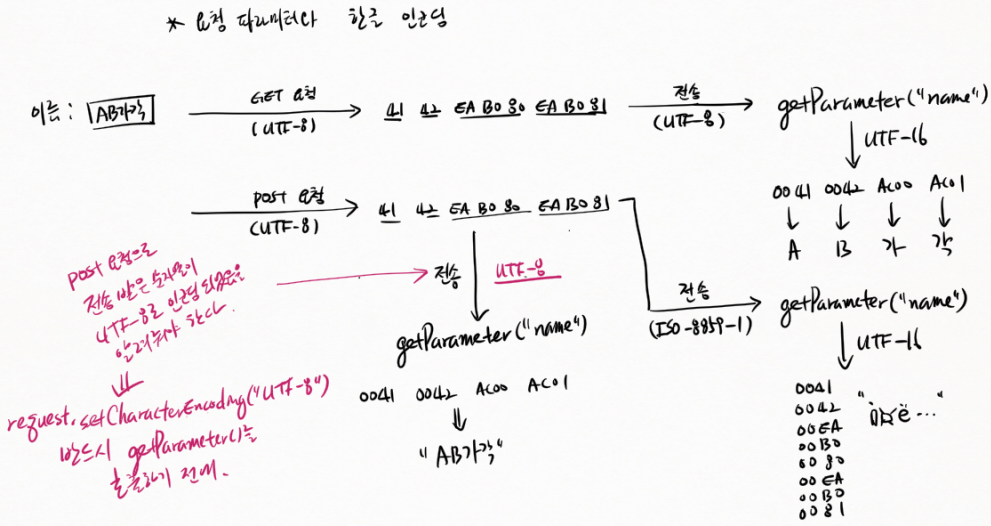 * 요청 파라미터와 한글 인코딩
이름 : AB가각
GET 요청
(UTF-8)
41 42 EA B0 80 EA B0 81
전송
(UTF-8)
getParameter("name")
UTF-16
0041 0042 AC00 AC01
A B 가 각
POST 요청
(UTF-8)
41 42 EA B0 80 EA B0 81
post 요청으로
전송 받은 숫자들이
UTF-8로 인코딩 되었음을
알려줘야 한다.
request.setCharacterEncoding("UTF-8")
반드시 getParameter()를
호출하기 전에.
전송
UTF-8
getParameter("name")
0041 0042 AC00 AC01
"AB가각"
전송
(ISO-8859-1)
getParameter("name")
UTF-16
0041
0042
00EA
00B0
0080
00EA
00B0
0081